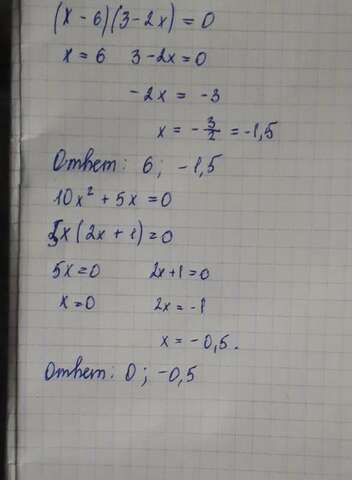 (x - 6)(3 - 2x) = 0
x = 6 3 - 2x = 0
- 2x = -3
x = - 3/2 = -1,5
Ответ: 6; -1,5
10x² + 5x = 0
5x(2x + 1) = 0
5x = 0 2x + 1 = 0
x = 0 2x = -1
x = -0,5.
Ответ: 0; -0,5